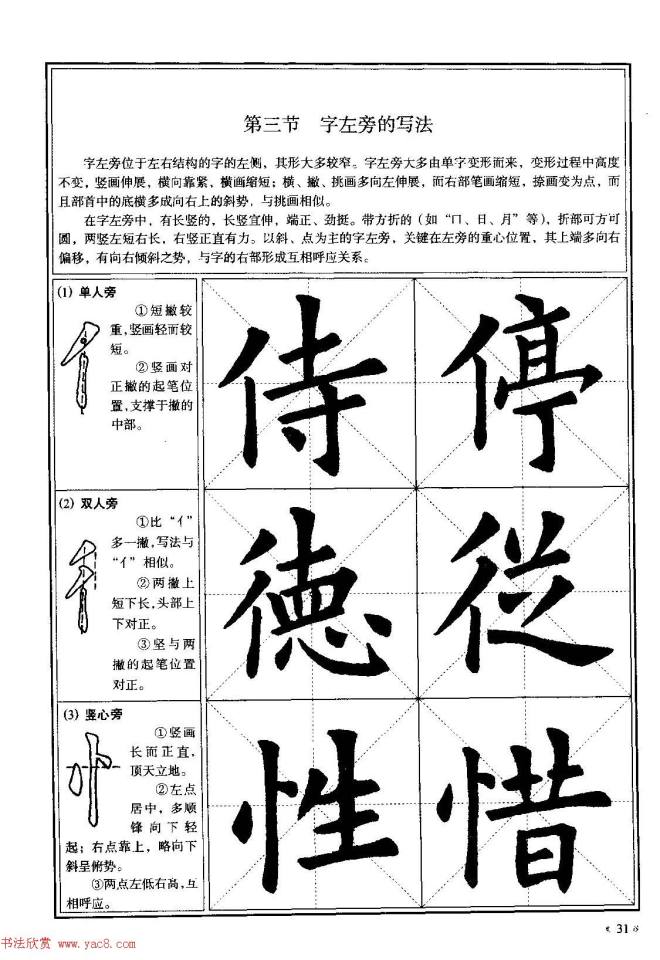 第三节　字左旁的写法
字左旁位于左右结构的字的左侧，其形大多较窄。字左旁大多由单字变形而来，变形过程中高度
不变，竖画伸展，横向靠紧，横画缩短；横、撇、挑画多向左伸展，而右部笔画缩短，捺画变为点，而
且部首中的底横多成向右上的斜势，与挑画相似。
在字左旁中，有长竖的，长竖宜伸，端正、劲挺。带方折的（如“口、日、月”等），折部可方可
圆，两竖左短右长，右竖正直有力。以斜、点为主的字左旁，关键在左旁的重心位置，其上端多向右
偏移，有向右倾斜之势，与字的右部形成互相呼应关系。
(1) 单人旁
①短撇较
重，竖画轻而较
短。
②竖画对
正撇的起笔位
置，支撑于撇的
中部。
侍 停
(2) 双人旁
①比“亻”
多一撇，写法与
“亻”相似。
②两撇上
短下长，头部上
下对正。
③竖与两
撇的起笔位置
对正。
德 从
(3) 竖心旁
①竖画
长而正直，
顶天立地。
②左点
居中，多顺
锋向下轻
起；右点靠上，略向下
斜呈俯势。
③两点左低右高，互
相呼应。
性 惜
31
书法欣赏 www.yac8.com